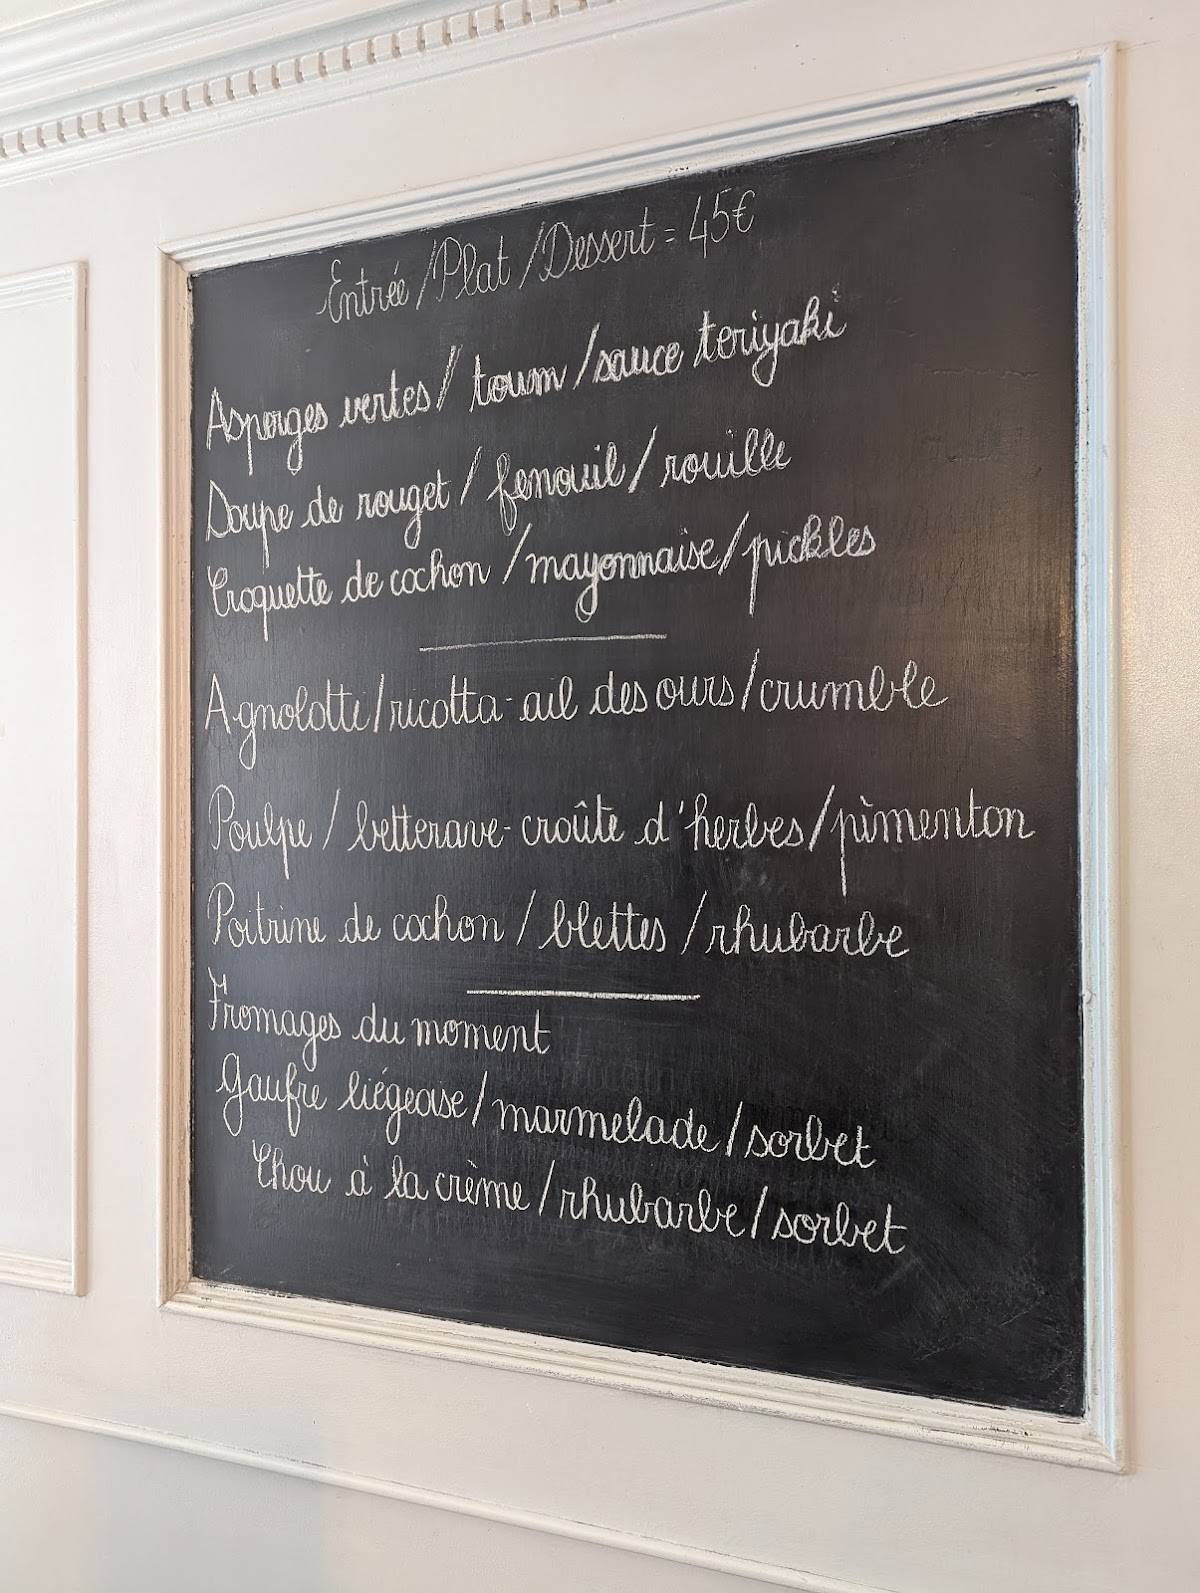 Entrée / Plat / Dessert = 45€
Asperges vertes / toum / sauce teriyaki
Soupe de rouget / fenouil / rouille
Croquette de cochon / mayonnaise / pickles
Agnolotti / ricotta-ail des ours / crumble
Poulpe / betterave-croûte d'herbes / pimenton
Poitrine de cochon / blettes / rhubarbe
Fromages du moment
Gaufre liégeoise / marmelade / sorbet
Chou à la crème / rhubarbe / sorbet